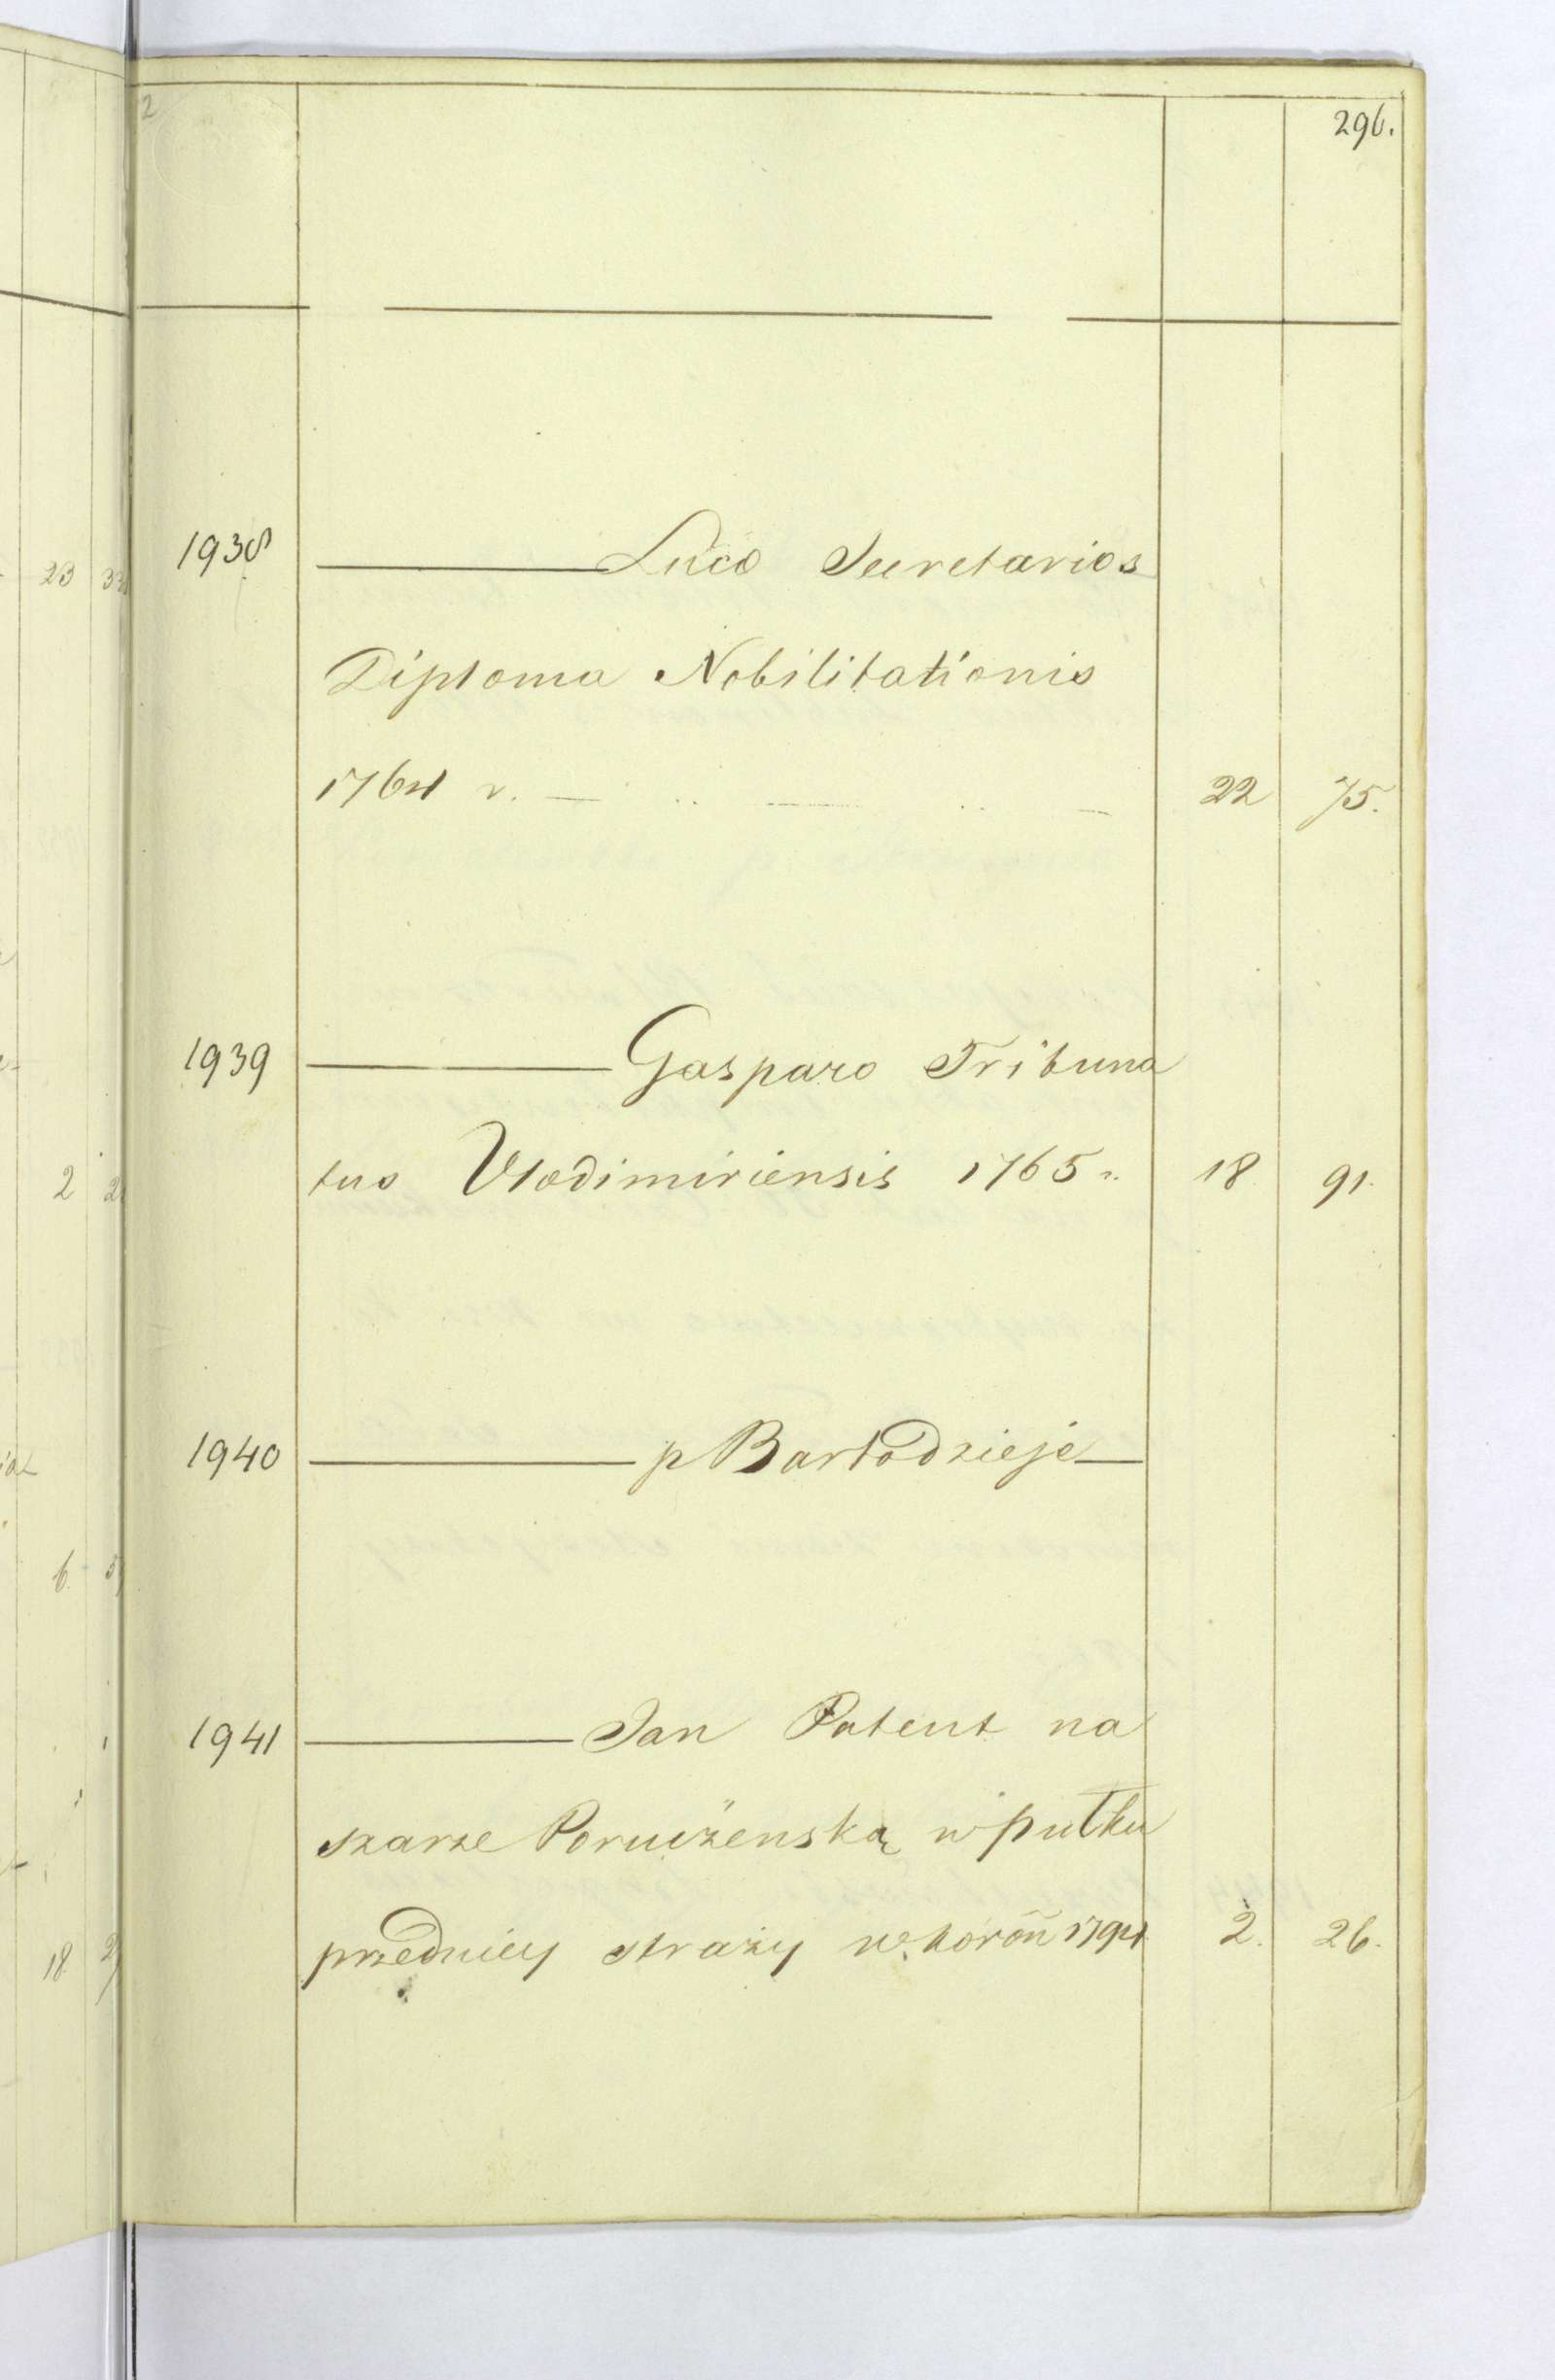 296.
1938 ——— Luco Secretarios
Diploma Nobilitationis
1764 r. — 22 75.
1939 ——— Gasparo Tribuna
tus Vlodimiriensis 1765 r. 18. 91.
1940 ——— p Bartodzieje —
1941 ——— Jan Patent na
szarze Poruczenską w pułku
przedniey straży w koroñ 1794 2. 26.